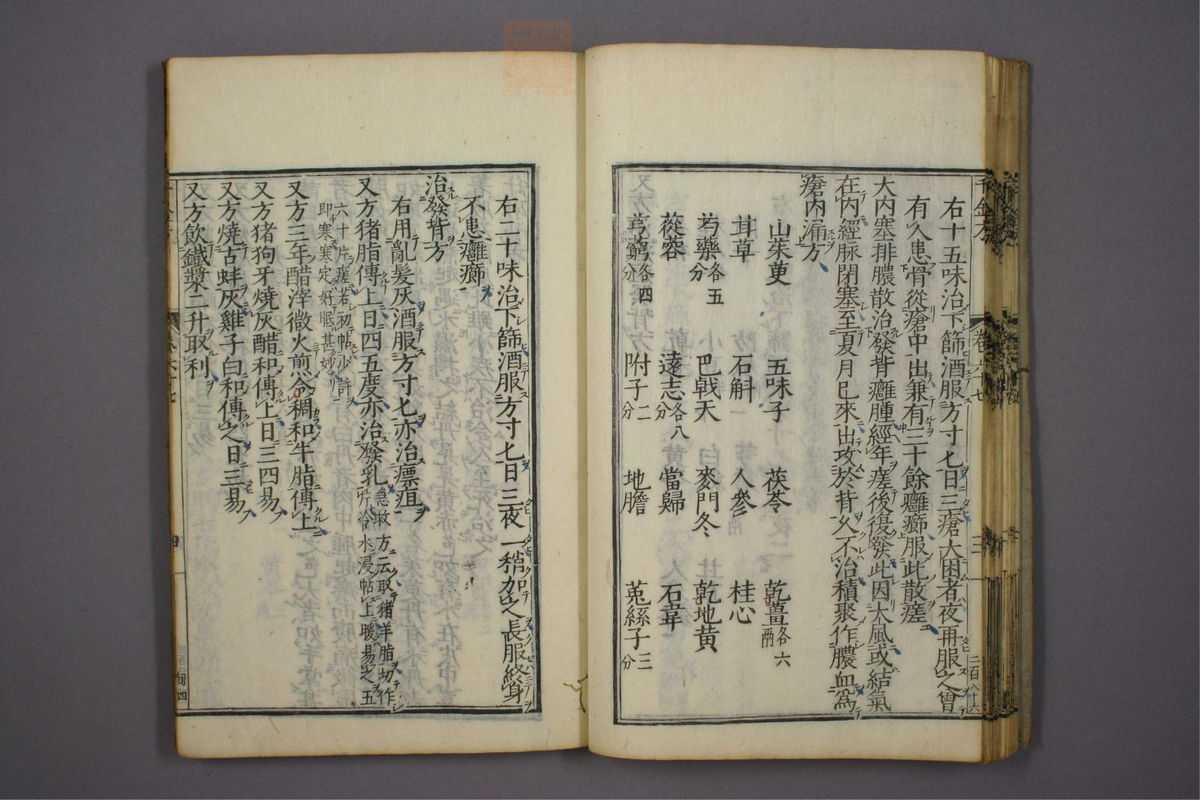 千金方
右十五味治下篩酒服方寸匕日三瘡大困者夜再服之曾
有人患骨從瘡中出兼有三十餘癰癤服此散瘥
大內塞排膿散治發背癰腫經年瘥後復發此因大風或結氣
在內經脉閉塞至夏月已來出攻於背久不治積聚作膿血爲
瘡內漏方
山茱萸 五味子 茯苓 乾薑各六兩
甘草 石斛 人參 桂心
芍藥各五分 巴戟天 麥門冬 乾地黃
蓯蓉 遠志各八分 當歸 石韋
芎藭各四分 附子二分 地膽 菟絲子三分
右二十味治下篩酒服方寸匕日三夜一稍加之長服終身
不患癰癤
治發背方
右用亂髮灰酒服方寸匕亦治瘭疽
又方猪脂傅上日四五度亦治發乳急救方云取猪羊脂切作片冷水浸帖上暖易之五
六十片瘥若初帖少許即寒寒定好眠甚妙
又方三年醋滓微火煎令稠和牛脂傅上
又方猪狗牙燒灰醋和傅上日三四易
又方燒古蚌灰雞子白和傅之日三易
又方飲鐵漿二升取利